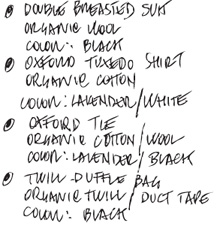 DOUBLE BREASTED SUIT
ORGANIC WOOL
COLOR: BLACK
OXFORD TUXEDO SHIRT
ORGANIC COTTON
COLOR: LAVENDER/WHITE
OXFORD TIE
ORGANIC COTTON/WOOL
COLOR: LAVENDER/BLACK
TWILL DUFFLE BAG
ORGANIC TWILL/DUCT TAPE
COLOR: BLACK